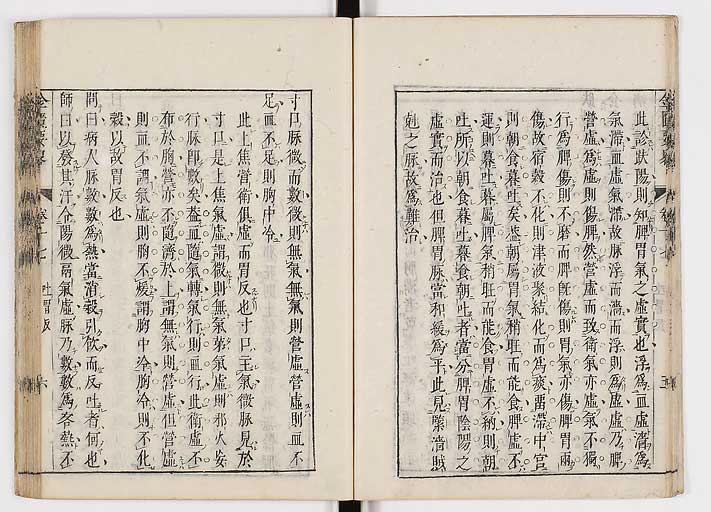 此診趺陽則知脾胃氣之虛實也浮爲血虛濇爲
氣滯血虛氣滯故脉浮而濇而浮則爲虛虛乃脾
營虛爲虛則傷脾然營虛而致衛氣亦虛氣不獨
行爲脾傷則不磨而脾旣傷則胃氣亦傷脾胃兩
傷故宿糓不化則津液聚結化而爲痰畱滯中宫
則朝食暮吐矣葢朝屬胃氣稍旺而能食脾虛不
運則暮吐暮屬脾氣稍旺而能食胃虛不納則朝
吐所以朝食暮吐暮食朝吐者當分脾胃陰陽之
虛實而治也但脾胃脉當和緩爲平此見緊濇賊
尅之脉故爲難治
寸口脉微而數微則無氣無氣則營虛營虛則血不
足血不足則胸中冷
此上焦營衛俱虛而胃反也寸口主氣微脉見於
寸口是上焦氣虛謂微則無氣第氣虛則邪火妄
行脉卽數矣葢血隨氣轉氣行則血行此衛虛不
布於胸營亦不隨濟於上謂無氣則營虛但營虛
則血不調氣虛則胸不煖謂胸中冷胸冷則不化
糓以故胃反也
問曰病人脉數數爲熱當消糓引飮而反吐者何也
師曰以發其汗令陽微膈氣虛脉乃數數爲客熱不